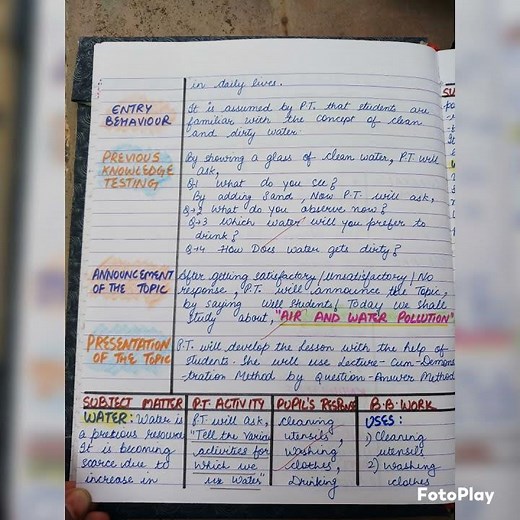 in daily lives.
ENTRY
BEHAVIOUR
It is assumed by P.T. that students are
familiar with the concept of clean
and dirty water.
PREVIOUS
KNOWLEDGE
TESTING
By showing a glass of clean water, P.T. will
ask,
Q.1 What do you see?
By adding Sand, Now P.T. will ask,
Q→2 What do you observe now?
Q→3 Which water will you prefer to
drink?
Q→4 How Does water gets dirty?
ANNOUNCEMENT
OF THE TOPIC
After getting satisfactory/unsatisfactory/No
response, P.T. will announce the Topic,
by saying well students! Today we shall
study about, "AIR AND WATER POLLUTION"
PRESENTATION
OF THE TOPIC
P.T. will develop the Lesson with the help of
students. She will use Lecture-Cum-Demons
-tration Method by Question-Answer Method
SUBJECT MATTER
P.T. ACTIVITY
PUPIL'S RESPONSE
B.B. WORK
WATER: Water is
a precious resource
It is becoming
scarce due to
increase in
P.T. will ask,
"Tell the various
activities for
which we
use Water"
cleaning
utensils,
washing
clothes,
Drinking
USES:
1) Cleaning
utensils
2) Washing
clothes
FotoPlay